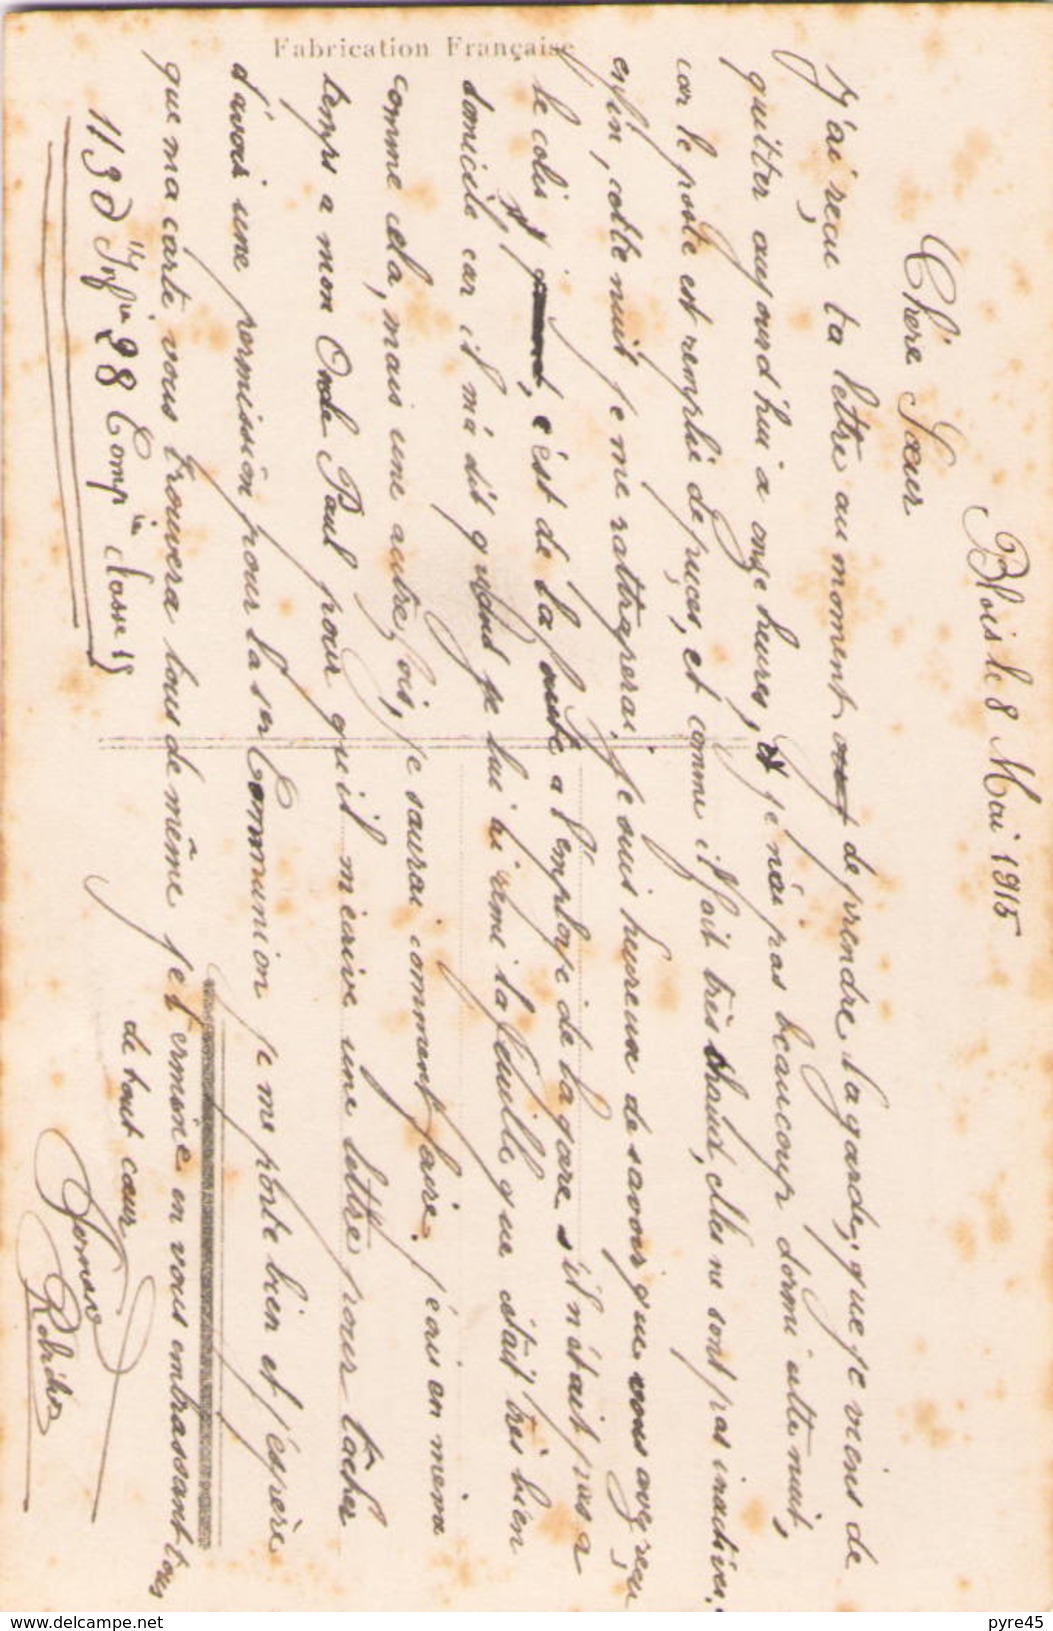 Fabrication Française
Blois le 8 Mai 1915
Chère Sœur
J'ai reçu ta lettre au moment de prendre la garde, que je viens de
quitter aujourd'hui a onze heures, je n'ai pas beaucoup dormi cette nuit,
car le poste est remplié de puces, et comme il fait très chaud, elles ne sont pas inactives,
enfin, cette nuit je me rattraperai, je suis heureux de savoir que vous avez reçu
le colis, c'est de la faute a l'employé de la gare s'il n'était pas a
domicile car il m'a dit que je lui ai remi la feuille que c'était très bien
comme cela, mais une autre fois, je saurai comment faire. j'écris en même
temps a mon Oncle Paul pour qu'il m'écrive une lettre pour tâcher
d'avoir une permission pour la 1er Communion je me porte bien et j'espère
que ma carte vous trouvera tous de même je termine en vous embrassant tous
de tout cœur
113e Infie 28 Compie classe 15